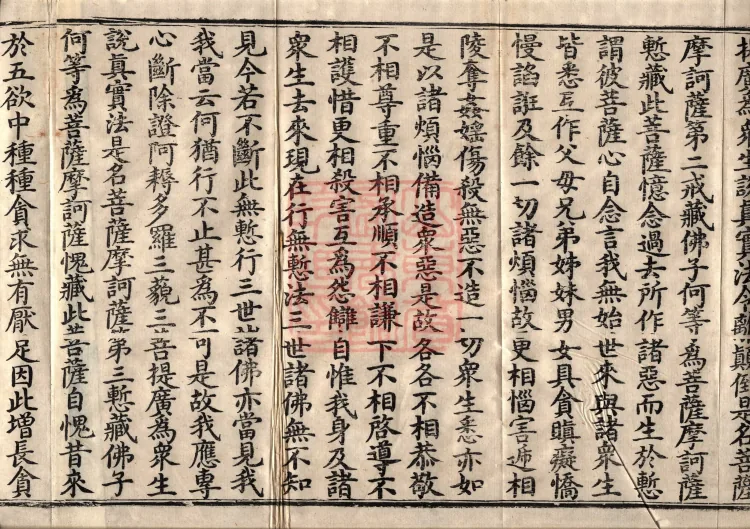 眾生說真實法令離顛倒是名菩薩
摩訶薩第二戒藏佛子何等為菩薩摩訶薩
慙藏此菩薩憶念過去所作諸惡而生於慙
謂彼菩薩心自念言我無始世來與諸眾生
皆悉互作父母兄弟姊妹男女具貪瞋癡憍
慢諂誑及餘一切諸煩惱故更相惱害遞相
陵奪姦婬傷殺無惡不造一切眾生悉亦如
是以諸煩惱備造眾惡是故各各不相恭敬
不相尊重不相承順不相謙下不相啓導不
相護惜更相殺害互為怨讎自惟我身及諸
眾生去來現在行無慙法三世諸佛無不知
見今若不斷此無慙行三世諸佛亦當見我
我當云何猶行不止甚為不可是故我應專
心斷除證阿耨多羅三藐三菩提廣為眾生
說真實法是名菩薩摩訶薩第三慙藏佛子
何等為菩薩摩訶薩愧藏此菩薩自愧昔來
於五欲中種種貪求無有厭足因此增長貪